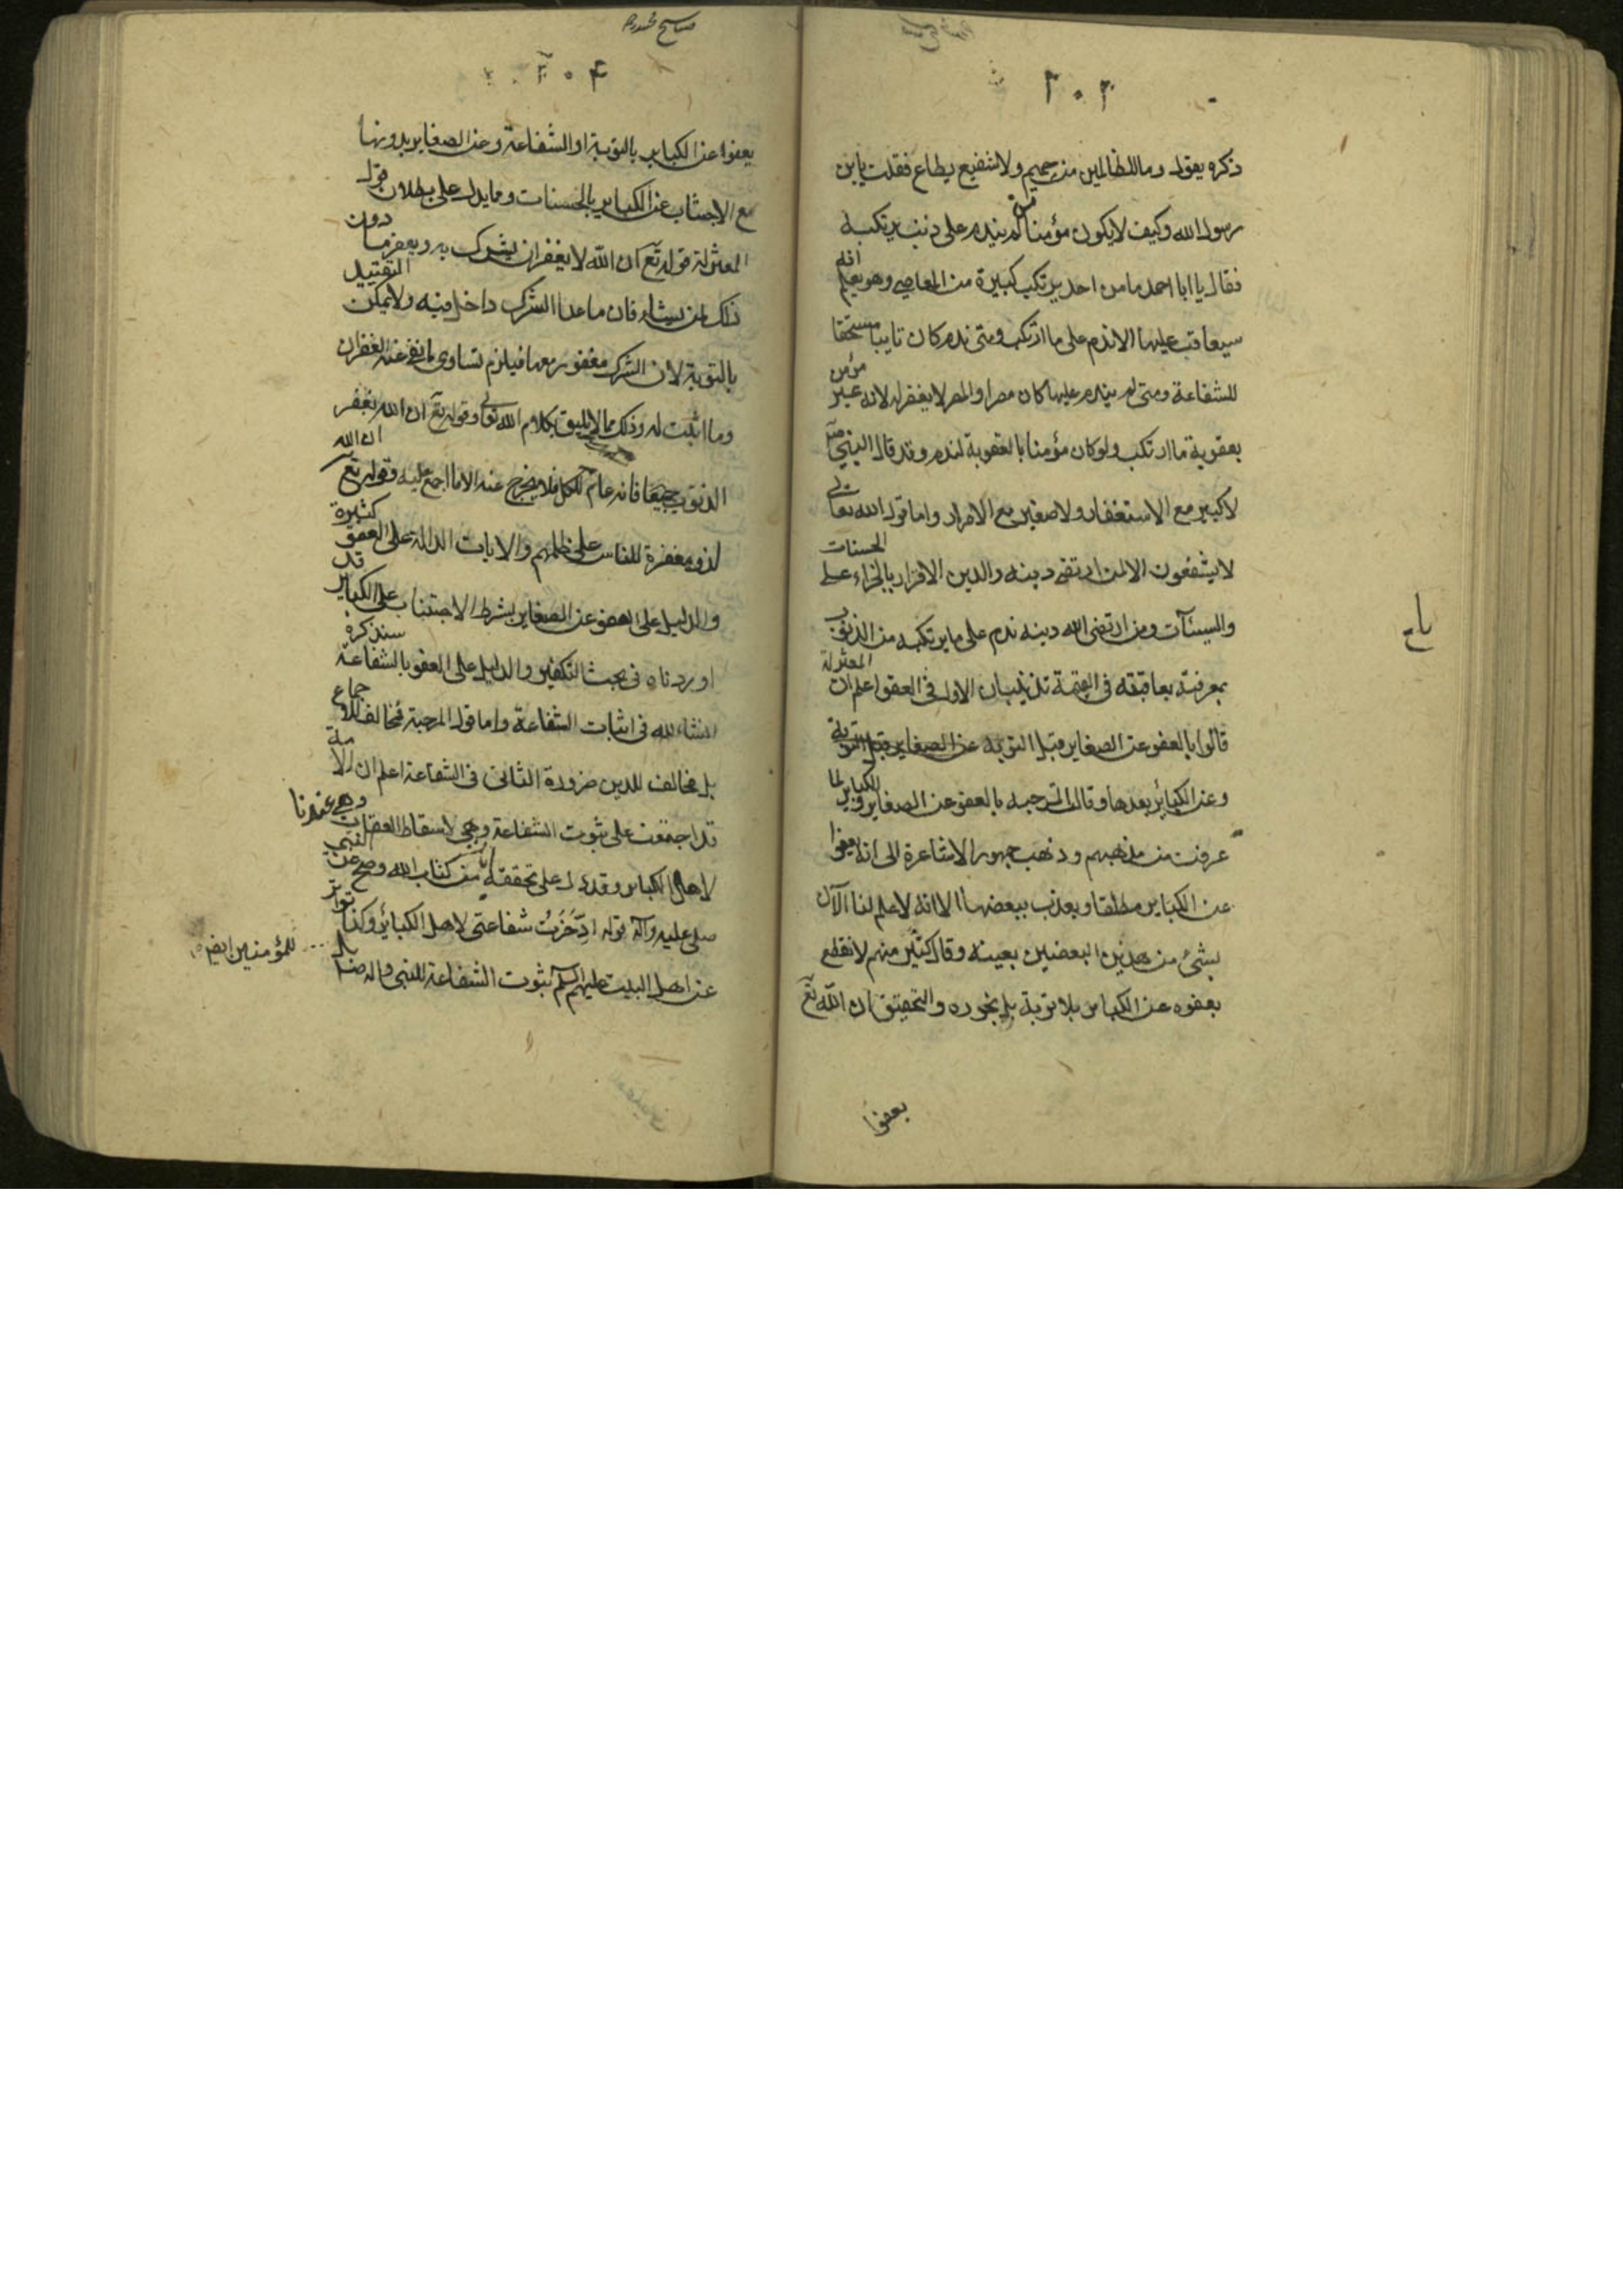 ٣٠٣
ذكره يقول وما للظالمين من حميم ولا شفيع يطاع فقلت يابن
رسول الله وكيف لا يكون مؤمنا من لم يندم على ذنب يرتكبه
فقال يا ابا احمد ما من احد يرتكب كبيرة من المعاصي وهو يعلم انه
سيعاقب عليها الا ندم على ما ارتكب ومتى ندم كان تايبا مستحقا
للشفاعة ومتى لم يندم عليها كان مصرا والمصر لا يغفر له لانه غير مؤمن
بعقوبة ما ارتكب ولو كان مؤمنا بالعقوبة لندم وقد قال النبي ص
لا كبير مع الاستغفار ولا صغير مع الاصرار واما قول الله تعالى
لا يشفعون الا لمن ارتضى دينه والدين الاقرار بالجزاء على الحسنات
والسيئآت ومن ارتضى الله دينه ندم على ما يرتكبه من الذنوب
بمعرفته بعاقبته في القيمة تذنيبان الاول في العفو اعلم ان المعتزلة
قالوا بالعفو عن الصغاير قبل التوبة عن الصغاير قبل التوبة
وعن الكبائر بعدها وقالت المرجبه بالعفو عن الصغاير والكباير لما
عرفت من مذهبهم وذهب جمهور الاشاعرة الى انه يعفوا
عن الكباير مطلقا ويعذب ببعضها الا انه لا علم لنا الآن
بشئ من هذين البعضين بعينه وقال كثير منهم لا نقطع
بعفوه عن الكباير بلا توبة بل نجوزه والتحقيق ان الله تع
يعفوا
٣٠٤
يعفوا عن الكباير بالتوبة او الشفاعة وعن الصغاير بدونها
مع الاجتناب عن الكباير بالحسنات ومما يدل على بطلان قول
المعتزلة قوله تع ان الله لا يغفر ان يشرك به ويغفر ما دون
ذلك لمن يشاء فان ما عدا الشرك داخل فيه ولا يمكن التقييد
بالتوبة لان الشرك مغفور معها فيلزم تساوى ما نفى عنه الغفران
وما اثبت له وذلك مما لا يليق بكلام الله تعالى وقوله تع ان الله يغفر
الذنوب جميعا فانه عام للكل فلا يخرج عنه الا ما اجمع عليه وقوله تع ان الله
لذو مغفرة للناس على ظلمهم والايات الدالة على العفو كثيرة
والدليل على العفو عن الصغاير بشرط الاجتناب على الكباير قد
اوردناه في بحث التكفير والدليل على العفو بالشفاعة سنذكره
انشاء لله في اثبات الشفاعة واما قول المرجبة فمخالف للاجماع
بل مخالف للدين ضرورة الثاني في الشفاعة اعلم ان الامة
قد اجتمعت على ثبوت الشفاعة وهي عندنا لاسقاط العقاب
لاهل الكباير وقد دل على تحققه من كتاب الله وصح عن النبي
صلى عليه وآله قوله ادّخرت شفاعتى لاهل الكبائر وكذا تواتر
عن اهل البيت عليهم السلم ثبوت الشفاعة للنبي واله
للمؤمنين ايضا